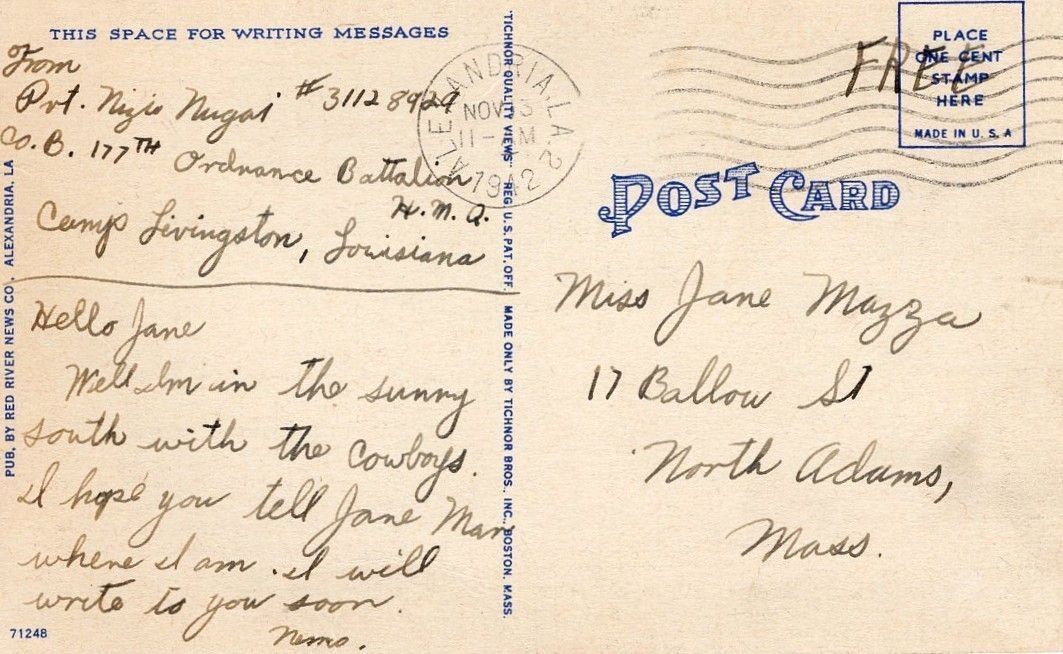 THIS SPACE FOR WRITING MESSAGES
From
Pvt. Nizio Nugai #31128929
Co. B. 177TH Ordnance Battalion
H.M.Q.
Camp Livingston, Louisiana
Hello Jane
Well Im in the sunny
south with the cowboys.
I hope you tell Jane Man
where I am. I will
write to you soon.
Nemo.
71248
PUB. BY RED RIVER NEWS CO., ALEXANDRIA, LA
"TICHNOR QUALITY VIEWS" REG. U. S. PAT. OFF. MADE ONLY BY TICHNOR BROS., INC., BOSTON, MASS.
ALEXANDRIA, LA. 2
NOV 13
11-AM
1942
FREE
PLACE
ONE CENT
STAMP
HERE
MADE IN U. S. A
POST CARD
Miss Jane Mazza
17 Ballou St
North Adams,
Mass.